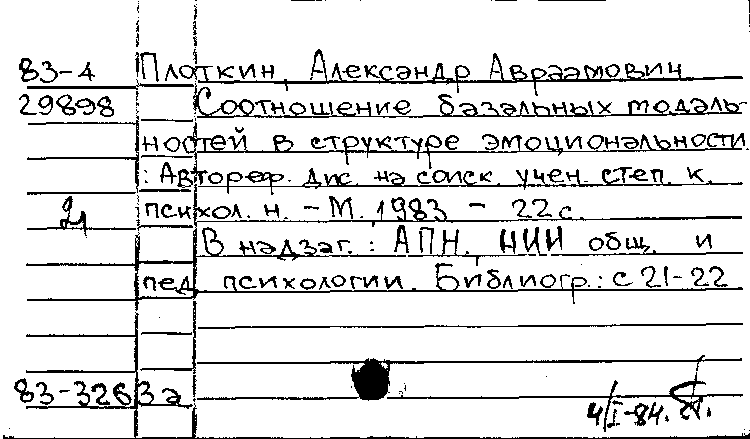 83-4 Плоткин, Александр Авраамович
29898 Соотношение базальных модаль-
ностей в структуре эмоциональности
: Автореф. дис. на соиск. учен. степ. к.
психол. н. - М., 1983 - 22 с.
В надзаг.: АПН, НИИ общ. и
пед. психологии. Библиогр.: с 21-22
83-3263а
4/I-84.